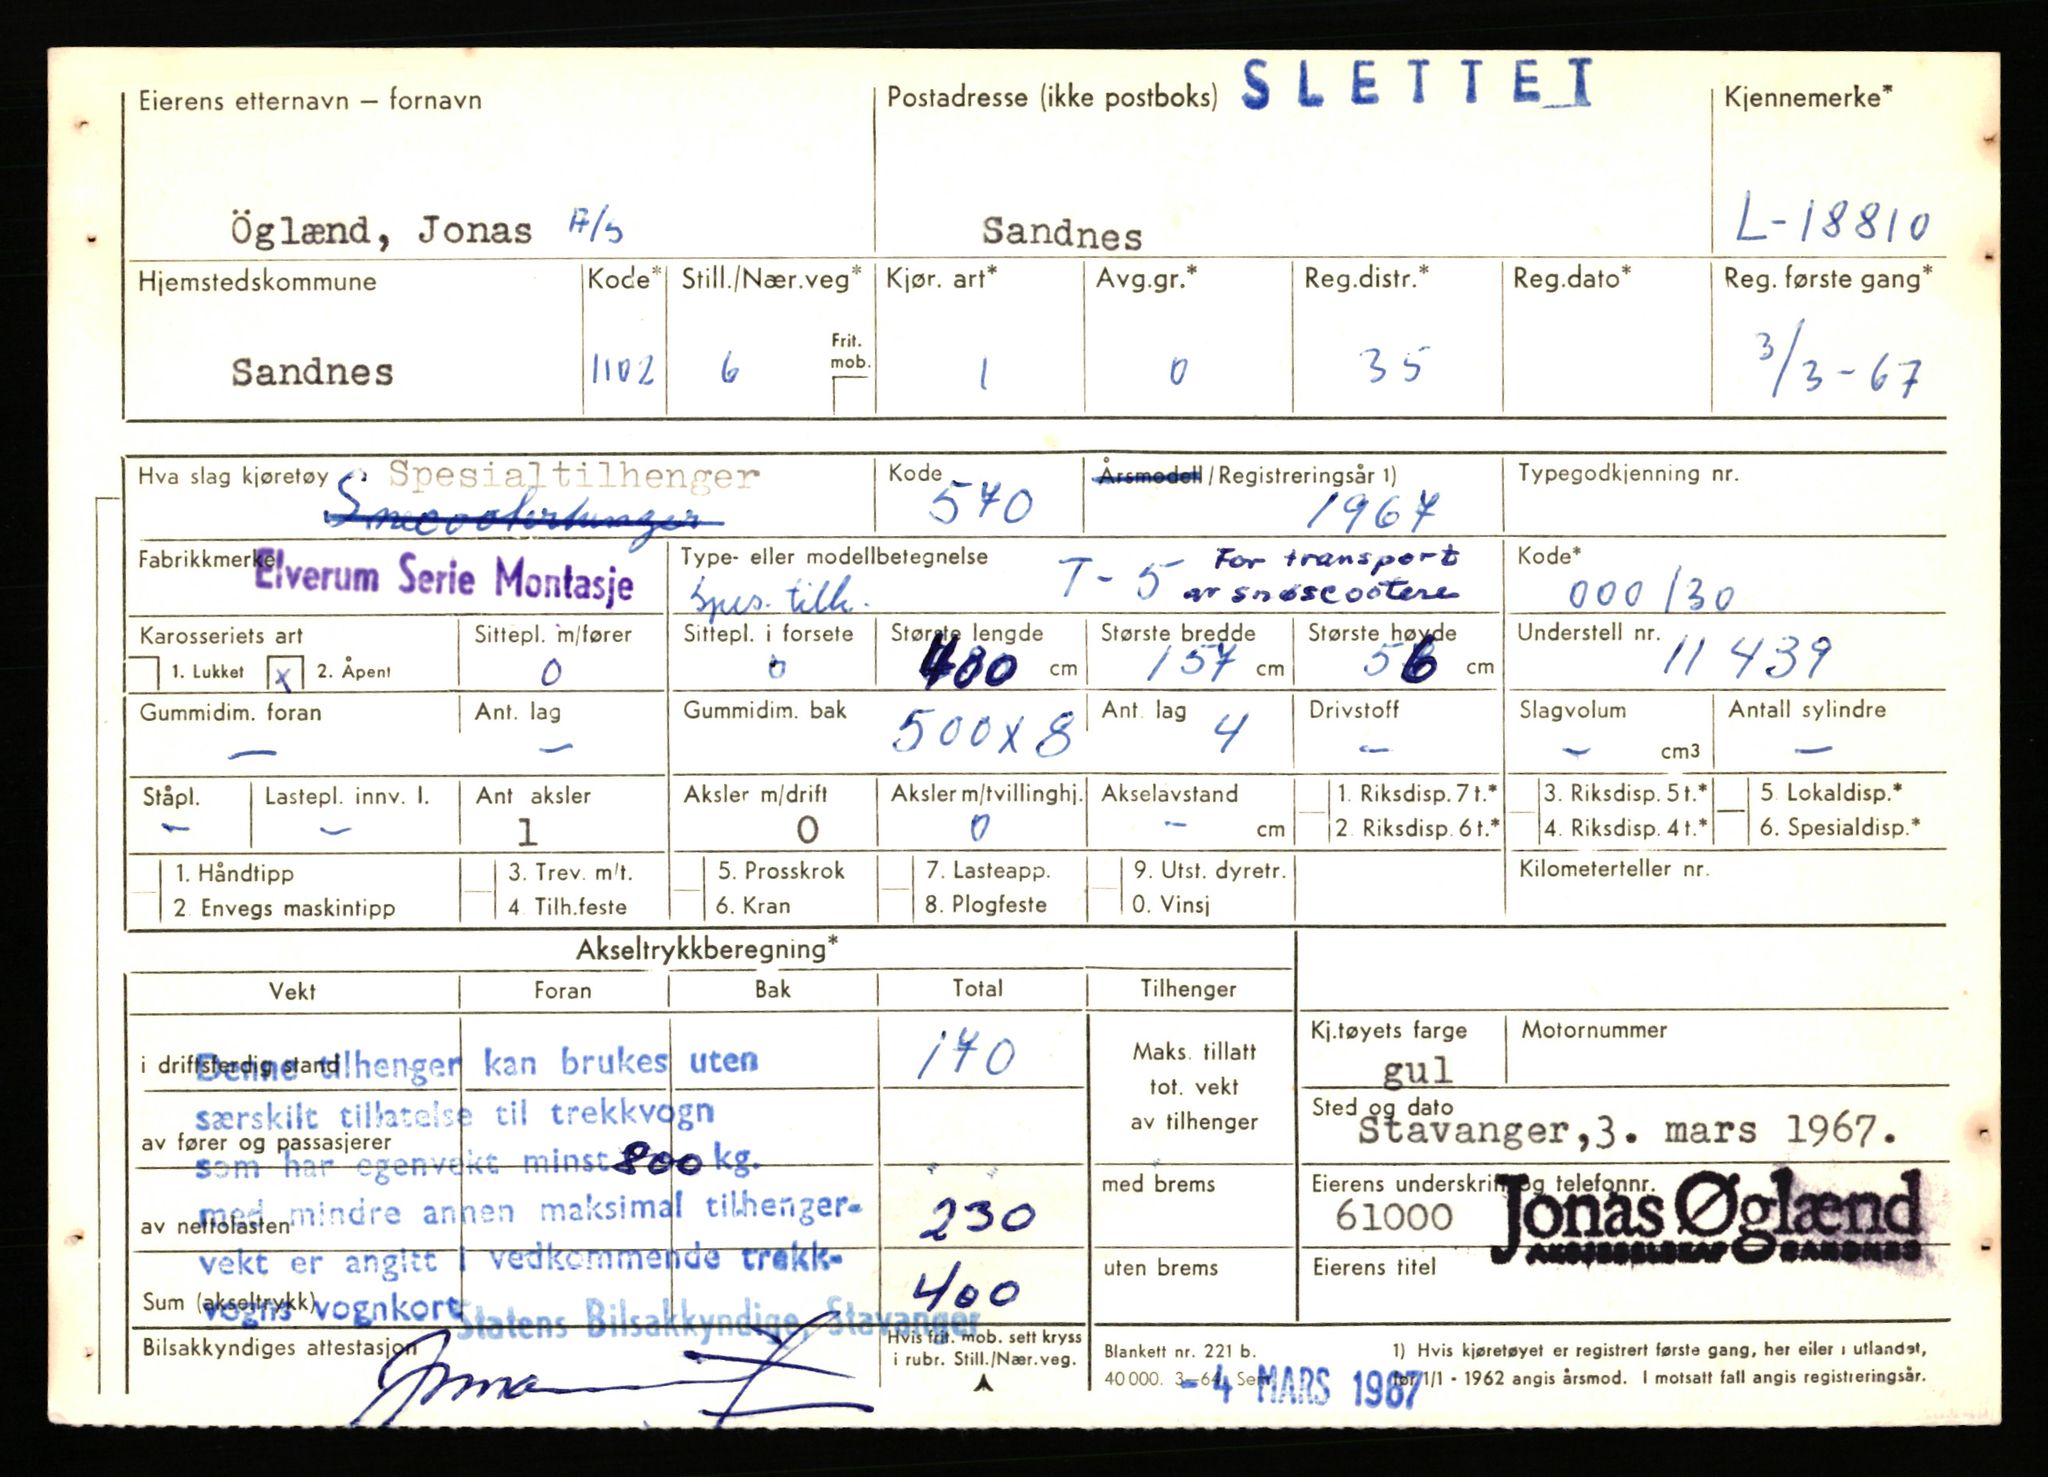 SLETTET
Eierens etternavn – fornavn
Postadresse (ikke postboks)
Kjennemerke*
Öglænd, Jonas A/S
Sandnes
L-18810
Hjemstedskommune
Kode*
Still./Nær.veg*
Kjør. art*
Avg.gr.*
Reg.distr.*
Reg.dato*
Reg. første gang*
Sandnes
1102
6
Frit. mob.
1
0
35
3/3-67
Hva slag kjøretøy
Spesialtilhenger
Kode
570
Årsmodell/Registreringsår 1)
1967
Typegodkjenning nr.
Fabrikkmerke
Elverum Serie Montasje
Type- eller modellbetegnelse
spes. tilh.
T-5
For transport
av snøscootere
Kode*
000/30
Karosseriets art
1. Lukket
x
2. Åpent
Sittepl. m/fører
0
Sittepl. i forsete
0
Største lengde
480 cm
Største bredde
157 cm
Største høyde
56 cm
Understell nr.
11439
Gummidim. foran
—
Ant. lag
—
Gummidim. bak
500x8
Ant. lag
4
Drivstoff
—
Slagvolum
— cm3
Antall sylindre
—
Ståpl.
—
Lastepl. innv. l.
—
Ant aksler
1
Aksler m/drift
0
Aksler m/tvillinghj.
0
Akselavstand
— cm
1. Riksdisp. 7 t.*
2. Riksdisp. 6 t.*
3. Riksdisp. 5 t.*
4. Riksdisp. 4 t.*
5. Lokaldisp.*
6. Spesialdisp.*
1. Håndtipp
2. Envegs maskintipp
3. Trev. m/t.
4. Tilh.feste
5. Prosskrok
6. Kran
7. Lasteapp.
8. Plogfeste
9. Utst. dyretr.
0. Vinsj
Kilometerteller nr.
Akseltrykkberegning*
Vekt
Foran
Bak
Total
Tilhenger
i driftsferdig stand
170
av fører og passasjerer
av nettolasten
230
Sum (akseltrykk)
400
Denne tilhenger kan brukes uten
særskilt tillatelse til trekkvogn
som har egenvekt minst 800 kg.
med mindre annen maksimal tilhenger-
vekt er angitt i vedkommende trekk-
vogns vognkort
Statens Bilsakkyndige, Stavanger
Maks. tillatt
tot. vekt
av tilhenger
med brems
uten brems
Kj.tøyets farge
gul
Motornummer
Sted og dato
Stavanger, 3. mars 1967.
Eierens underskrift og telefonnr.
61000
Jonas Øglænd
AKSJESELSKAP SANDNES
Eierens titel
Bilsakkyndiges attestasjon
Hvis frit. mob. sett kryss
i rubr. Still./Nær.veg.
Blankett nr. 221 b.
40 000. 3–64.
-4 MARS 1967
1) Hvis kjøretøyet er registrert første gang, her eller i utlandet,
før 1/1 - 1962 angis årsmod. I motsatt fall angis registreringsår.